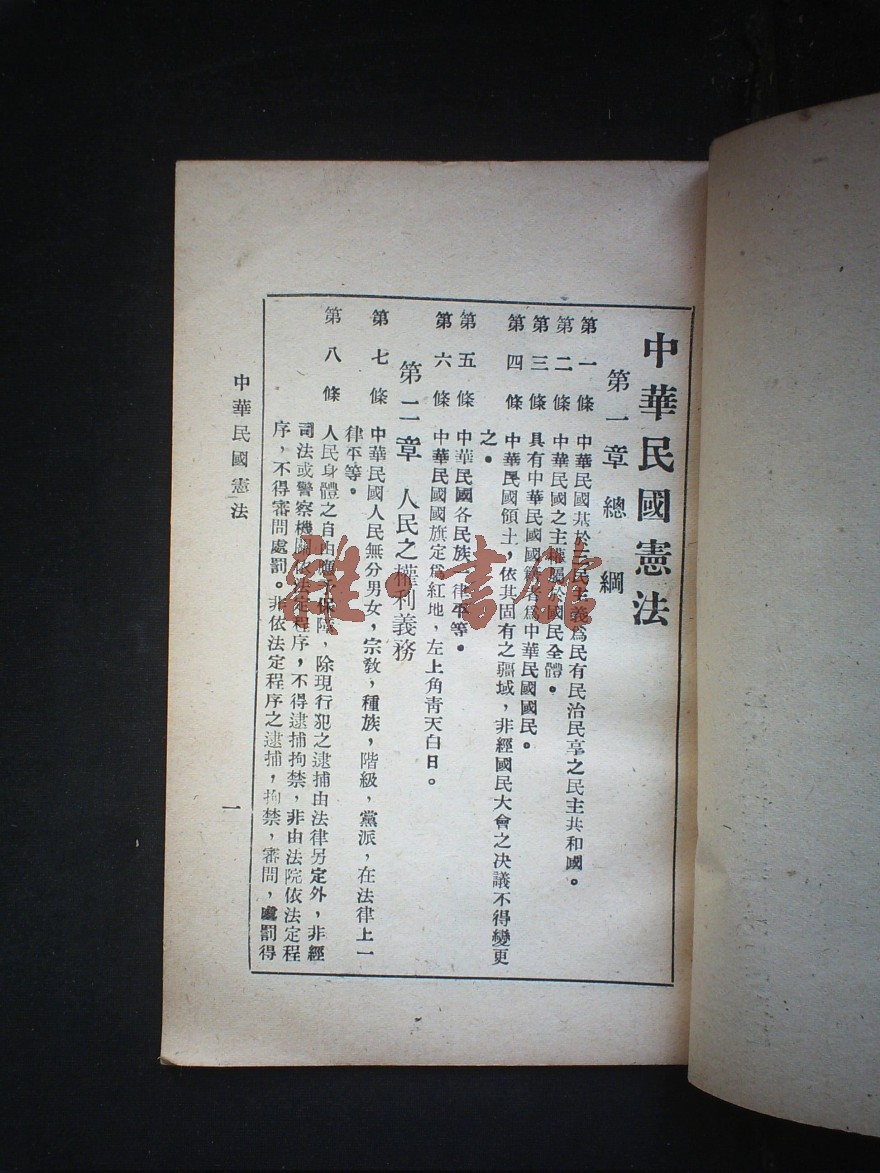 中華民國憲法
第一章 總 綱
第一條 中華民國基於三民主義爲民有民治民享之民主共和國。
第二條 中華民國之主權屬於國民全體。
第三條 具有中華民國國籍者爲中華民國國民。
第四條 中華民國領土，依其固有之疆域，非經國民大會之決議不得變更
之。
第五條 中華民國各民族一律平等。
第六條 中華民國國旗定爲紅地，左上角青天白日。
第二章 人民之權利義務
第七條 中華民國人民無分男女，宗教，種族，階級，黨派，在法律上一
律平等。
第八條 人民身體之自由應予保障，除現行犯之逮捕由法律另定外，非經
司法或警察機關依法定程序，不得逮捕拘禁，非由法院依法定程
序，不得審問處罰。非依法定程序之逮捕，拘禁，審問，處罰得
中華民國憲法
一
雜·書館